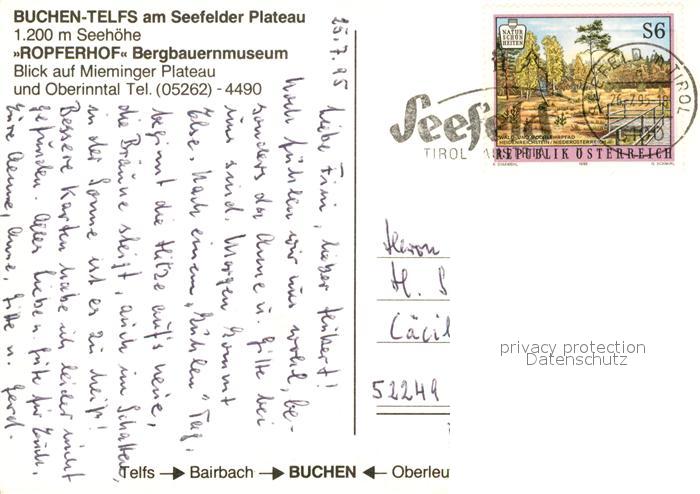 BUCHEN-TELFS am Seefelder Plateau
1.200 m Seehöhe
»ROPFERHOF« Bergbauernmuseum
Blick auf Mieminger Plateau
und Oberinntal Tel. (05262) - 4490
25.7.95
Liebe Fini, lieber Hubert!
Noch fühlen wir uns wohl, be-
sonders da Anne u. Gitte bei
uns sind. Morgen kommt
Else. Nach einem „kühlen" Tag,
beginnt die Hitze auf's neue,
die Bräune steigt, auch im Schatten,
in der Sonne ist es zu heiß!
Bessere Karten habe ich leider nicht
gefunden. Alles Liebe u. Gute für Euch,
Eure Aenne, Anne, Gitte u. Gerd.
NATUR
SCHÖN
HEITEN
S6
WALD- UND MOORLEHRPFAD
HEIDENREICHSTEIN / NIEDERÖSTERREICH
REPUBLIK ÖSTERREICH
1995
Seefeld
TIROL
TIROL
Herrn
H. S
Cäcil
52249
privacy protection
Datenschutz
Telfs → Bairbach → BUCHEN ← Oberleu